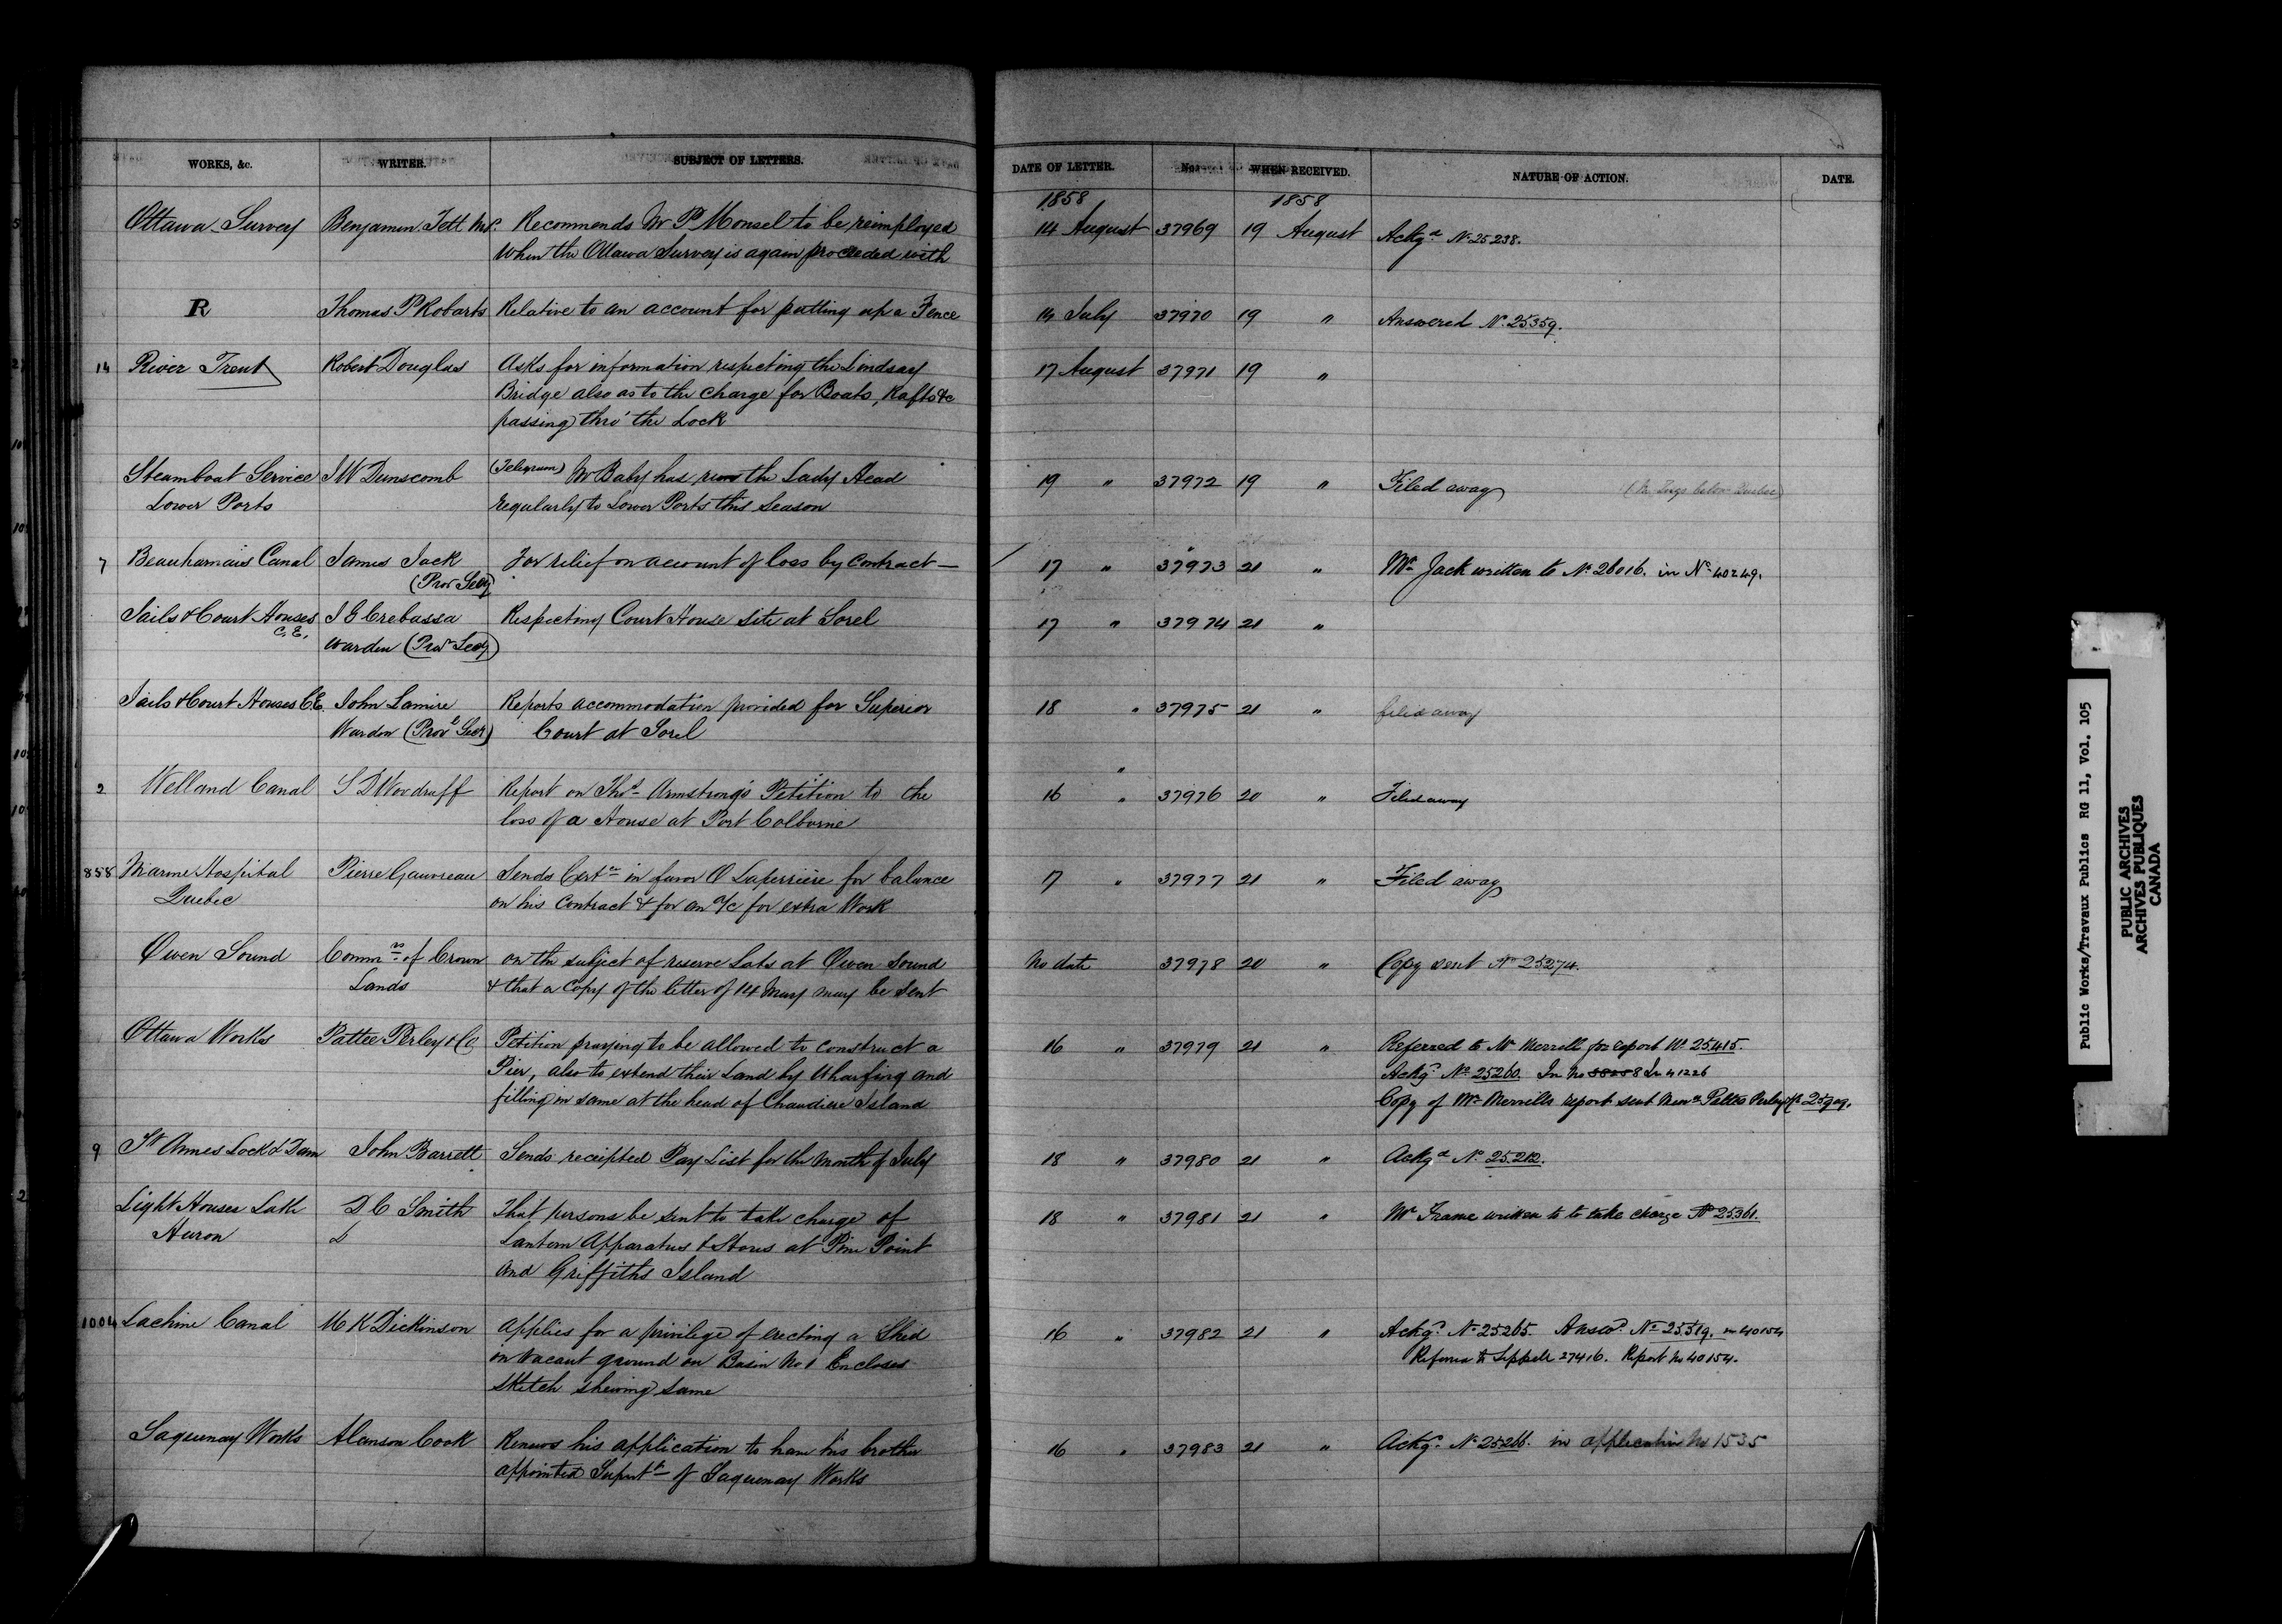 WORKS, &c. WRITER. SUBJECT OF LETTERS. DATE OF LETTER. No. WHEN RECEIVED. NATURE OF ACTION. DATE.
1858 1858
Ottawa Survey Benjamin Tett M.P. Recommends Mr P Monsel to be reimployed 14 August 37969 19 August Ackgd No 25238.
When the Ottawa Survey is again proceeded with
R Thomas P Robarts Relative to an account for putting up a Fence 14 July 37970 19 " Answered No. 25359.
14 River Trent Robert Douglas Asks for information respecting the Lindsay 17 August 37971 19 "
Bridge also as to the charge for Boats, Rafts &c
passing thro' the Lock
Steamboat Service J W Dunscomb (Telegram) Mr Baby has run the Lady Head 19 " 37972 19 " Filed away
Lower Ports regularly to Lower Ports this Season
7 Beauharnais Canal James Jack For relief on account of loss by contract — 17 " 37973 21 " Mr Jack written to No 26016. in No 40249.
(Prov Secy)
Jails & Court Houses J G Crebassa Respecting Court House Site at Sorel 17 " 37974 21 "
C.E. Warden (Prov Secy)
Jails & Court Houses C.E. John Lamire Reports accommodation provided for Superior 18 " 37975 21 " filed away
Warden (Prov Secy) Court at Sorel
2 Welland Canal S D Woodruff Report on Thos Armstrong's Petition to the 16 " 37976 20 " Filed away
loss of a House at Port Colborne
858 Marine Hospital Pierre Gauvreau Sends Certe in favor O Laperrière for balance 17 " 37977 21 " Filed away
Quebec on his Contract & for an a/c for extra Work
Owen Sound Commrs of Crown on the subject of reserve Lots at Owen Sound No date 37978 20 " Copy sent No 25274.
Lands & that a Copy of the letter of 14 May may be Sent
Ottawa Works Pattee Perley & Co Petition praying to be allowed to construct a 16 " 37979 21 " Referred to Mr Merrill for report No 25415.
Pier, also to extend their Land by Wharfing and Ackgd No 25260. In No 38258 In 41226
filling in same at the head of Chaudiere Island Copy of Mr Merrills report sent Messrs Pattee Perley & Co 25909.
9 St Annes Lock & Dam John Barrett Sends receipted Pay List for the Month of July 18 " 37980 21 " Ackgd No 25212.
Light Houses Lake D C Smith That persons be sent to take charge of 18 " 37981 21 " Mr Frame written to to take charge No 25361.
Huron Lantern Apparatus & Stores at Pine Point
and Griffiths Island
1004 Lachine Canal M K Dickinson Applies for a privilege of erecting a Shed 16 " 37982 21 " Ackgd No 25265. Answd No 25519. in 40154
on vacant ground on Basin No 1 Encloses Referred to Sippell 27416. Report No 40154.
sketch shewing same
Saguenay Works Alanson Cook Renews his application to have his brother 16 " 37983 21 " Ackgd No 25266. in application No 1535
appointed Supert of Saguenay Works
Public Works/Travaux Publics RG 11, Vol. 105
PUBLIC ARCHIVES
ARCHIVES PUBLIQUES
CANADA